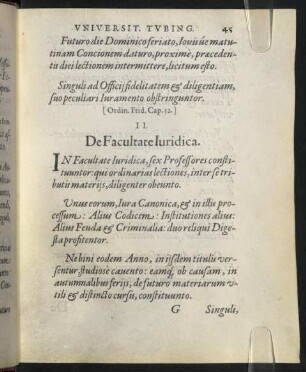 VNIVERSIT. TVBING. 45
Futuro die Dominico feriato, Iouis ue matu-
tinam Concionem daturo, proximè, præceden-
tis diei lectionem intermittere, licitum esto.
Singuli ad Officij fidelitatem & diligentiam,
suo peculiari Iuramento obstringuntor.
[Ordin. Frid. Cap. 52.]
II.
De Facultate Iuridica.
IN Facultate Iuridica, sex Professores consti-
tuuntor: qui ordinarias lectiones, inter se tri-
butis materijs, diligenter obeunto.
Vnus eorum, Iura Canonica, & in illis pro-
cessum: Alius Codicem: Institutiones alius:
Alius Feuda & Criminalia: duo reliqui Dige-
sta profitentor.
Ne bini eodem Anno, in ijsdem titulis ver-
sentur, studiosè cauento: eamq; ob causam, in
autumnalibus ferijs, de futuro materiarum v-
tili & distincto cursu, constituunto.
G Singuli,